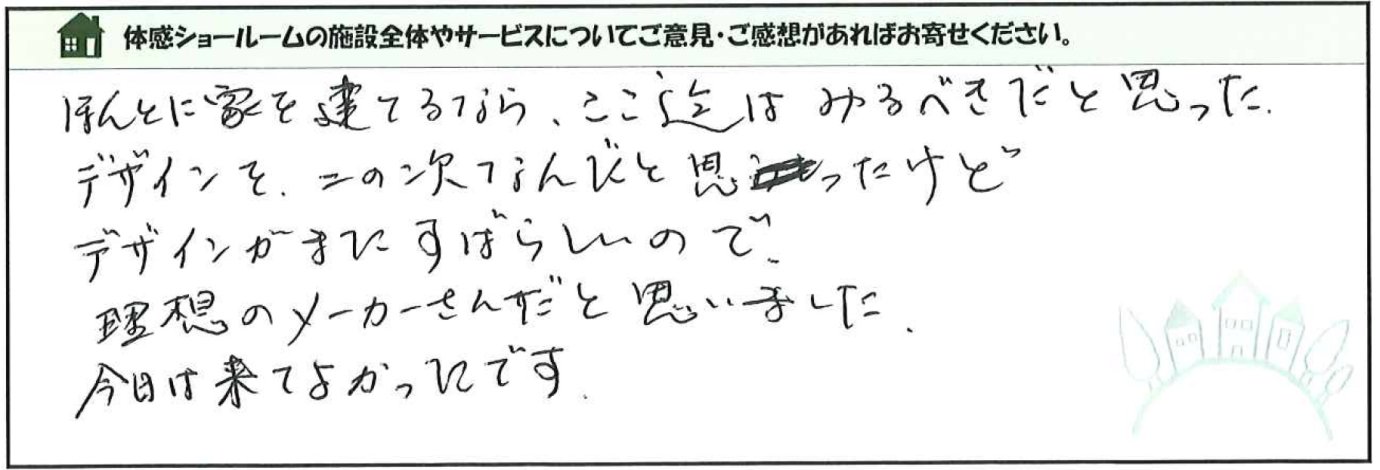 体感ショールームの施設全体やサービスについてご意見・ご感想があればお寄せください。
ほんとに家を建てるなら、ここ迄はみるべきだと思った.
デザインを、二の次なんだと思ったけど
デザインがまたすばらしいので、
理想のメーカーさんだと思いました.
今日は来てよかったです.